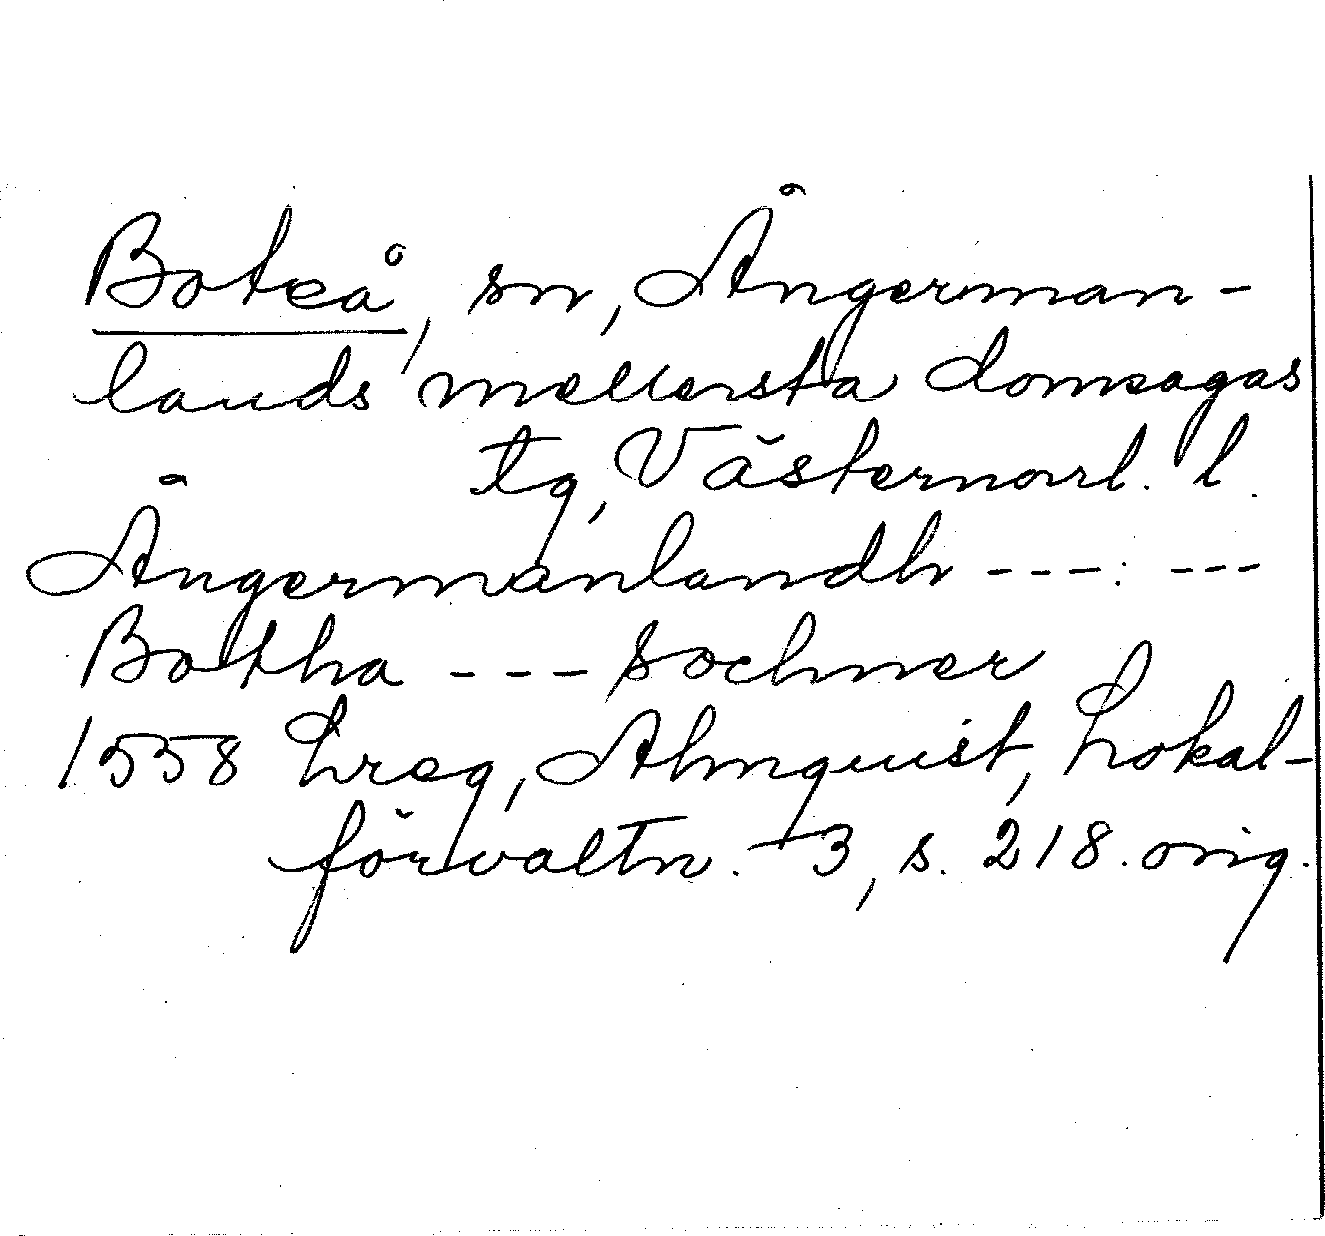 Boteå, sn, Ångerman-
lands mellersta domsagas
tg, Västernorrl. l.
Ångermanlandh ---: ---
Botha --- sochner
1558 Lreg, Almquist, Lokal-
förvaltn. 3, s. 218. orig.